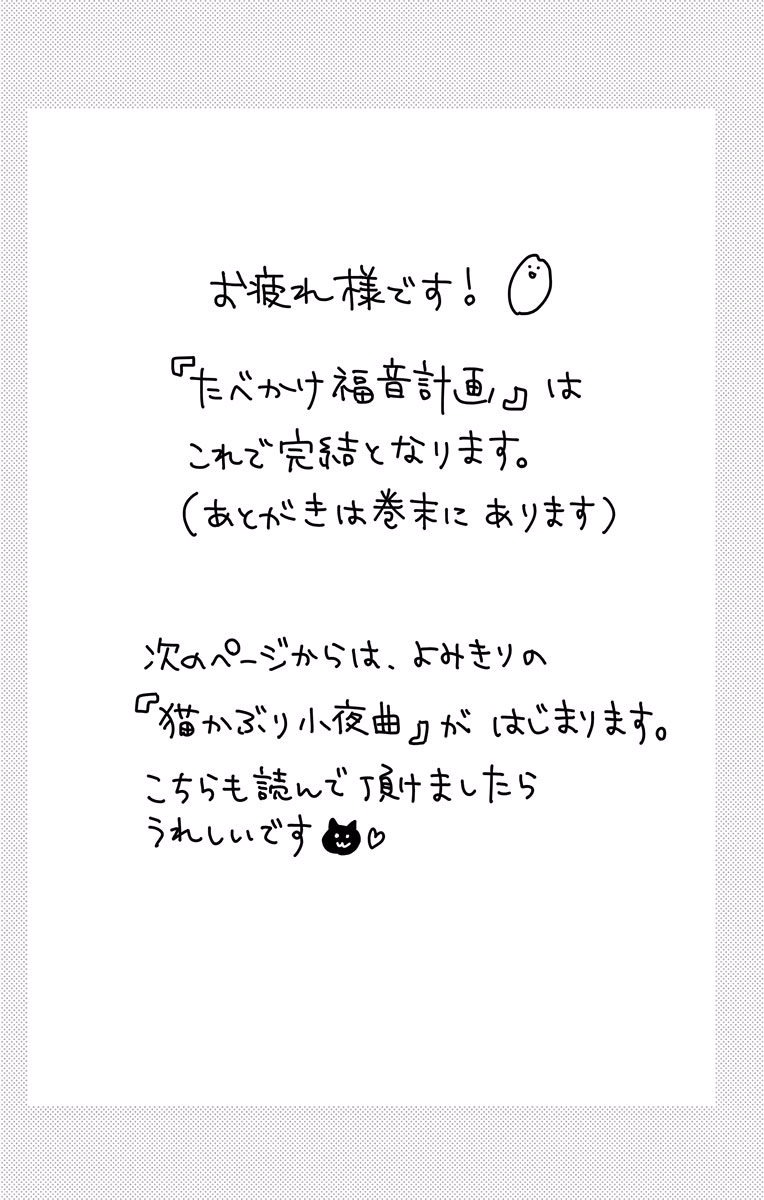 お疲れ様です!
『たべかけ福音計画』は
これで完結となります。
(あとがきは巻末にあります)
次のページからは、よみきりの
『猫かぶり小夜曲』がはじまります。
こちらも読んで頂けましたら
うれしいです♡